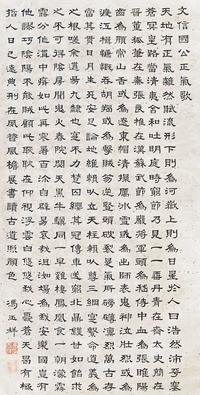 文信國公正氣歌
天地有正氣雜然賦流形下則為河嶽上則為日星於人曰浩然沛乎塞
蒼冥皇路當清夷含和吐明庭時窮節乃見一一垂丹青在齊太史
簡在晉董狐筆在秦張良椎在漢蘇武節為嚴將軍頭為嵇侍中血為張睢陽
齒為顏常山舌或為遼東帽清操厲冰雪或為出師表鬼神泣壯烈或為
渡江楫慷慨吞胡羯或為擊賊笏逆豎頭破裂是氣所磅礴凜烈萬古存
當其貫日月生死安足論地維賴以立天柱賴以尊三綱實繫命道義為
之根嗟予遘陽九隸也實不力楚囚纓其冠傳車送窮北鼎鑊甘如飴求
之不可得陰房闐鬼火春院閟天黑牛驥同一皁雞棲鳳凰食一朝濛霧
露分作溝中瘠如此再寒暑百沴自辟易哀哉沮洳場為我安樂國豈有
他謬巧陰陽不能賊顧此耿耿在仰視浮雲白悠悠我心憂蒼天曷有極
哲人日已遠典刑在夙昔風檐展書讀古道照顏色 馮玉祥